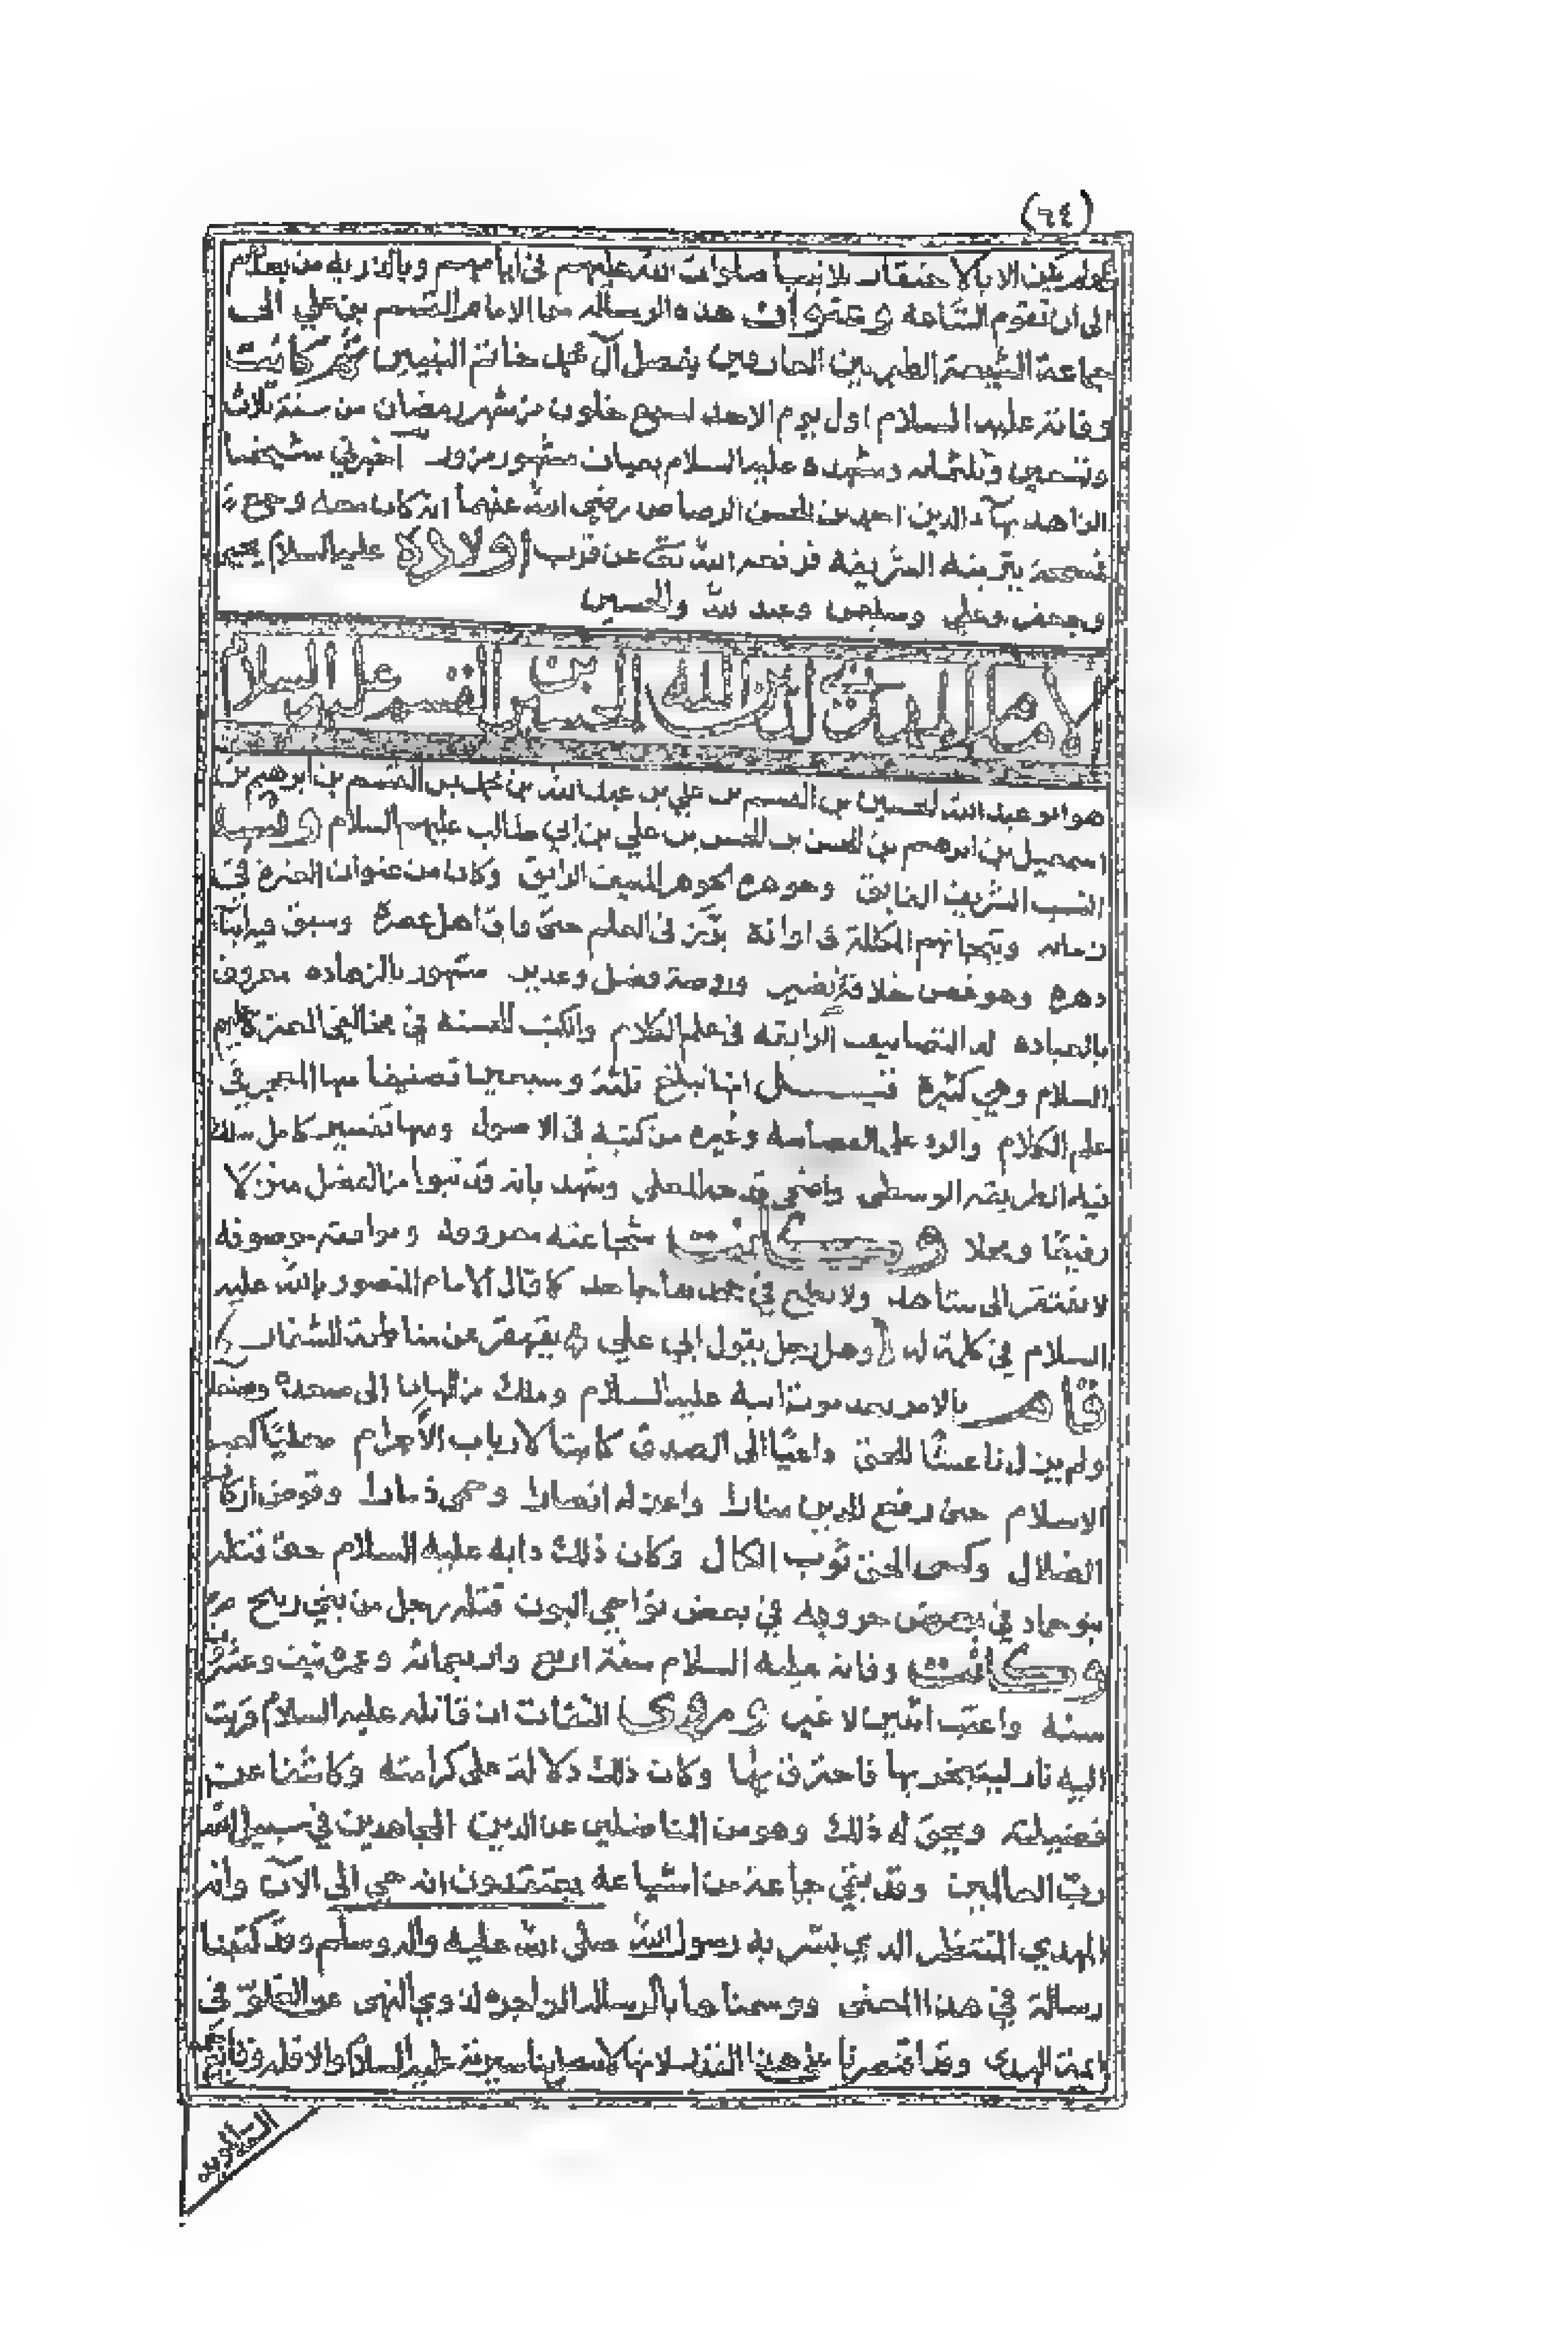 (٦٤)
الابا لانبيا صلوات الله عليهم في ايامهم وبالذريه من بعدهم
الى ان تقوم الساعة وعنوان هذه الرساله من الامام القسم بن علي الى
جماعة الشيعة الطبريين العارفين بفضل آل محمد خاتم النبيين ثم كانت
وفاته عليه السلام اول يوم الاحد لسبع خلون من شهر رمضان من سنة ثلاث
وتسعين وثلثمائه ومشهده عليه السلام بعيان مشهور مزور اخبرني شيخنا
الزاهد بهآء الدين احمد بن الحسن الرصاص رضي الله عنهما انه كان معه وجع
بتربته الشريفة فرفعه الله تعالى عن قرب اولاده عليه السلام يحيى
وجعفر وعلي وسليمن وعبد الله والحسين
الامام المهدي لدين الله الحسين بن القسم عليهما السلام
هو ابو عبد الله الحسين بن القسم بن علي بن عبد الله بن محمد بن القسم بن ابرهيم بن
اسمعيل بن ابرهيم بن الحسن بن الحسن بن علي بن ابي طالب عليهم السلام
النسب الشريف الفايق وهو هم الجوهر الرايق وكان من عيون العترة في
زمانه في اوانه برز في العلم حتى فاق اهل عصره وسبق ابنآء
دهره وهو غصن خلافة نضير وروضة فضل وغدير مشهور بالزهاده معروف
بالعباده له التصانيف الرايقه في علم الكلام والكتب الحسنه في مخالفي العترة عليهم
السلام وهي كثيرة قيل انها تبلغ ثلثة وسبعين تصنيفا منها المعجز في
علم الكلام والرد على وغيره من كتبه في الاصول ومنها تفسير كامل سلك
فيه الطريقه الوسطى قدحه المعلى وشهد بانه قد تبوا من الفضل منزلا
رفيعا ومحلا وكانت شجاعته معروفه موصوفه
لا تفتقر الى شاهد ولا يطمع في جحدها جاحد كما قال الامام المنصور بالله عليه
السلام في كلمة له وهل رجل يقول ابي علي يقهقر عن مناطحة الشفار
قام بالامر بعد موت ابيه عليه السلام وملك من الهان الى صعده وصنعا
ولم يزل ناعشا للحق داعيا الى الصدق كابتا لارباب الاجرام
الاسلام حتى رفع للدين منارا واعز له انصارا وحمى ذمارا وقوض اركان
الضلال وكسى الحق ثوب الكمال وكان ذلك دابه عليه السلام حتى قتله
بنو حماد في بعض حروبه في بعض نواحي البون قتله رجل من بني ربيح
وكانت وفاته عليه السلام سنة اربع واربعمائه وعمره نيف وعشرون
سنه ولا عقب وروى الثقات ان قاتله عليه السلام قربت
اليه نار ليتبخر بها فاحترق بها وكان ذلك دلالة على كرامته وكاشفا عن
فضيلته ويحق له ذلك وهو من المناضلين عن الدين المجاهدين في سبيل الله
رب العالمين وقد بقي جماعة من اشياعه يعتقدون انه حي الى الآن وانه
المهدي المنتظر الذي بشر به رسول الله صلى الله عليه واله وسلم وقد كتبنا
رسالة في هذا المعنى ووسمناها بالرسالة الزاجره لذوي النهى عن الغلو في
ائمة الهدى وقد اقتصرنا على هذا القدر سيرته عليه السلام